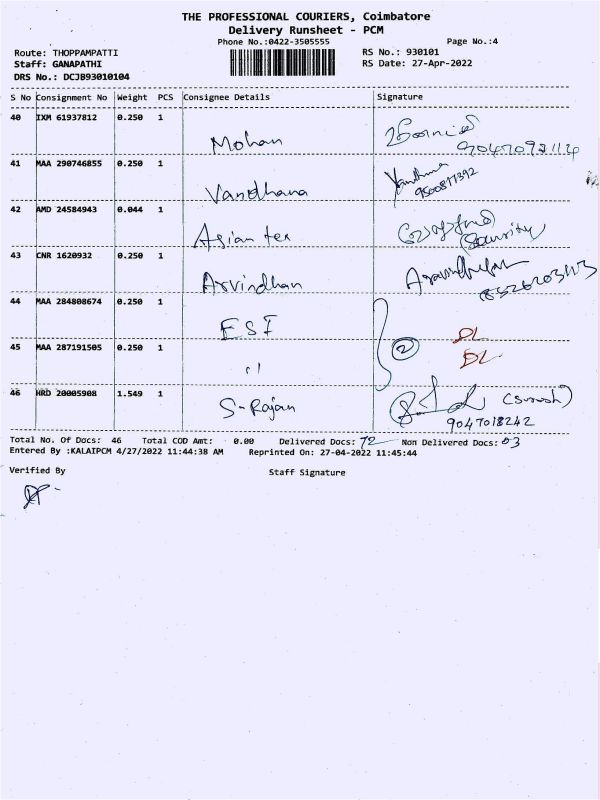 THE PROFESSIONAL COURIERS, Coimbatore
Delivery Runsheet - PCM
Phone No.:0422-3505555 Page No.:4
Route: THOPPAMPATTI RS No.: 930101
Staff: GANAPATHI RS Date: 27-Apr-2022
DRS No.: DCJB93010104
S No Consignment No Weight PCS Consignee Details Signature
40 IXM 61937812 0.250 1
Mohan
41 MAA 290746855 0.250 1
Vandhana 9500877392
42 AMD 24584943 0.044 1
Asian tex (Security)
43 CNR 1620932 0.250 1
Arvindhan
44 MAA 284808674 0.250 1
ESI DL
45 MAA 287191505 0.250 1 2
" DL
46 HRD 20005908 1.549 1
S-Rajan (Suresh)
9047018242
Total No. Of Docs: 46 Total COD Amt: 0.00 Delivered Docs: 72 Non Delivered Docs: 03
Entered By :KALAIPCM 4/27/2022 11:44:38 AM Reprinted On: 27-04-2022 11:45:44
Verified By Staff Signature